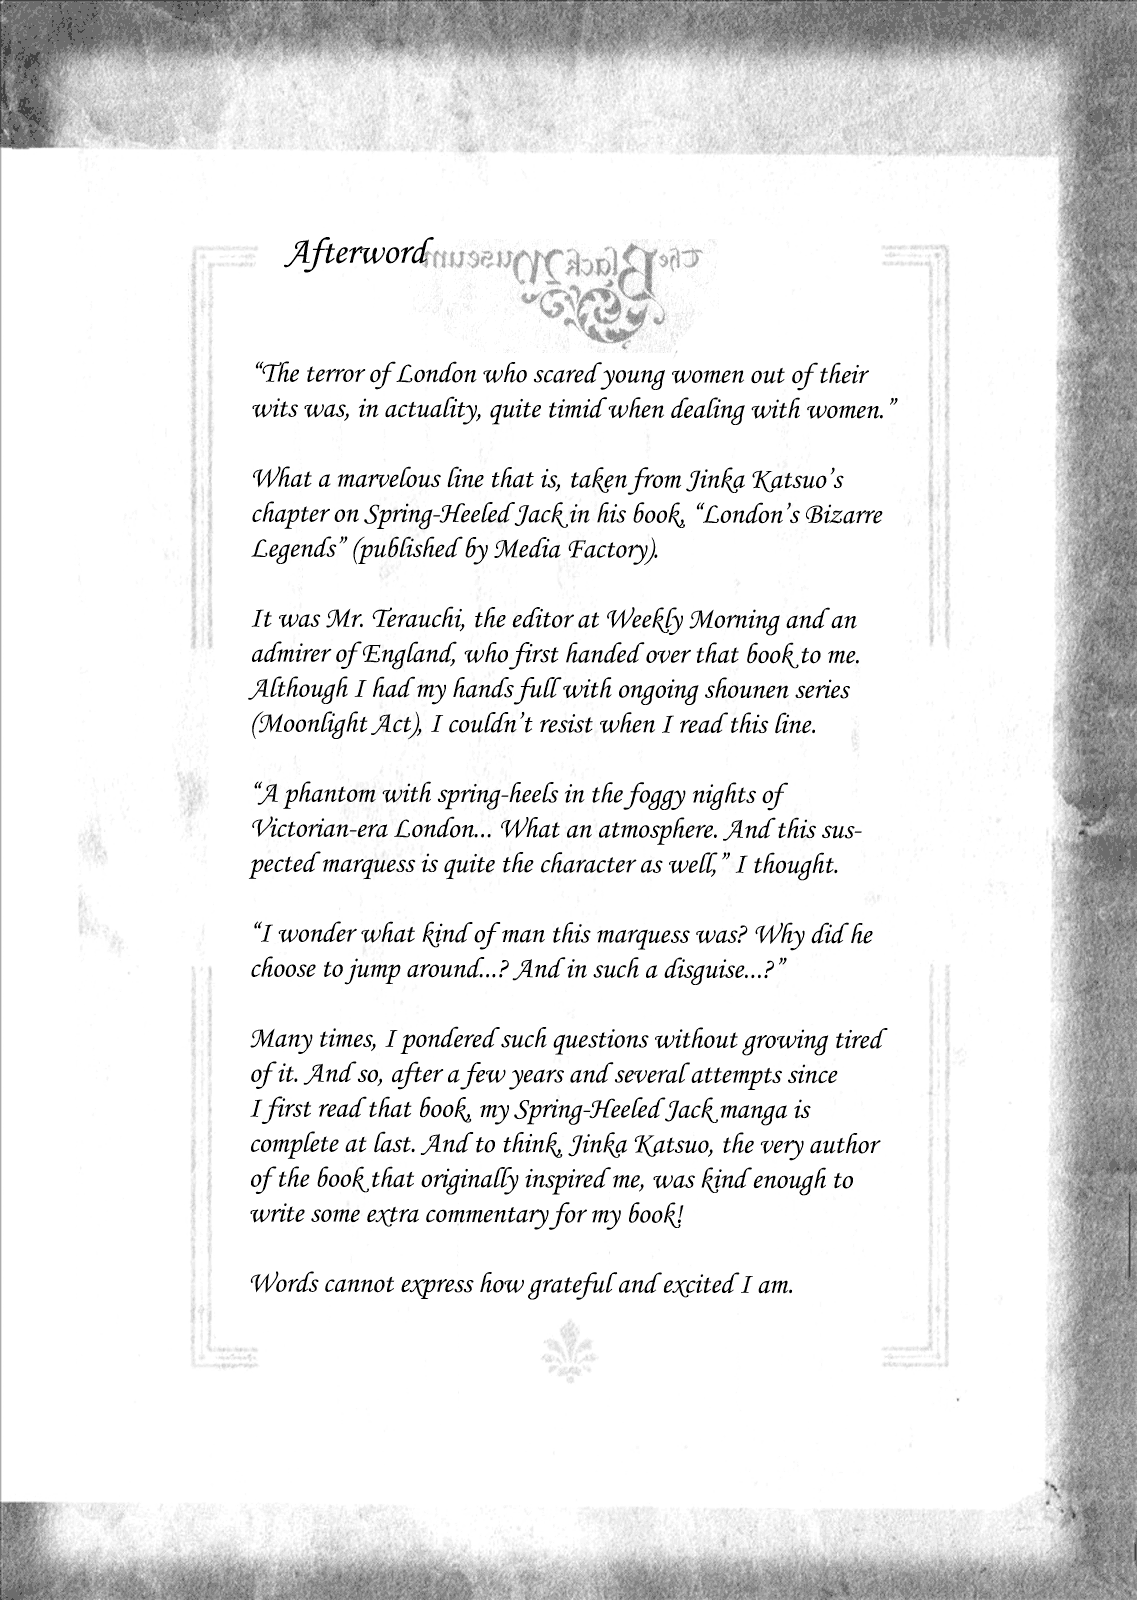 Afterword
The Black Museum
“The terror of London who scared young women out of their
wits was, in actuality, quite timid when dealing with women.”
What a marvelous line that is, taken from Jinka Katsuo’s
chapter on Spring-Heeled Jack in his book, “London’s Bizarre
Legends” (published by Media Factory).
It was Mr. Terauchi, the editor at Weekly Morning and an
admirer of England, who first handed over that book to me.
Although I had my hands full with ongoing shounen series
(Moonlight Act), I couldn’t resist when I read this line.
“A phantom with spring-heels in the foggy nights of
Victorian-era London... What an atmosphere. And this sus-
pected marquess is quite the character as well,” I thought.
“I wonder what kind of man this marquess was? Why did he
choose to jump around...? And in such a disguise...?”
Many times, I pondered such questions without growing tired
of it. And so, after a few years and several attempts since
I first read that book, my Spring-Heeled Jack manga is
complete at last. And to think, Jinka Katsuo, the very author
of the book that originally inspired me, was kind enough to
write some extra commentary for my book!
Words cannot express how grateful and excited I am.